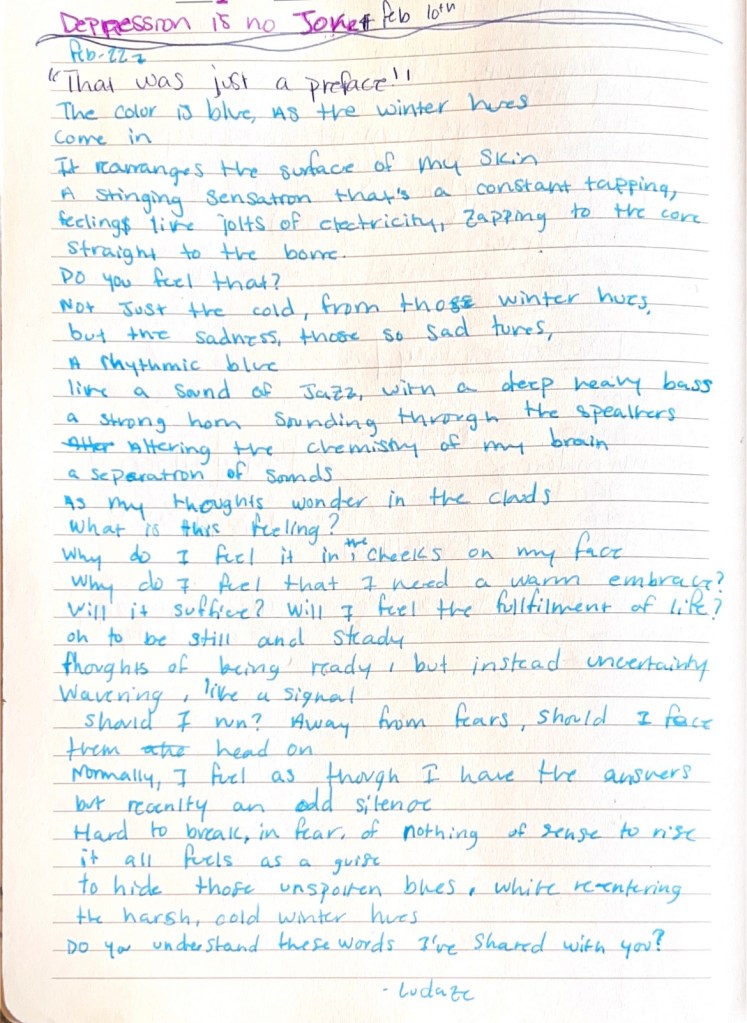 Depression is no Joke# feb 10th
Feb-22
"That was just a preface!"
The color is blue, As the winter hues
Come in
It rearranges the surface of my Skin
A stinging Sensation that's a constant tapping,
feelings like jolts of electricity, zapping to the core
straight to the bone.
Do you feel that?
Not Just the cold, from those winter hues,
but the sadness, those so sad tunes,
A rhythmic blue
like a Sound of Jazz, with a deep heavy bass
a strong horn Sounding through the speakers
After Altering the chemistry of my brain
a separation of Sounds
As my thoughts wonder in the clouds
What is this feeling?
Why do I feel it in the cheeks on my face
Why do I feel that I need a warm embrace?
Will it suffice? Will I feel the fullfilment of life?
oh to be still and steady
thoughts of being ready, but instead uncertainty
Wavering, like a signal
Should I run? Away from fears, should I face
them head on
Normally, I feel as though I have the answers
but recenlty an odd silence
Hard to break, in fear, of nothing of sense to rise
it all feels as a guise
to hide those unspoken blues, while re-entering
the harsh, cold winter hues
Do you understand these words I've shared with you?
- Ludaze